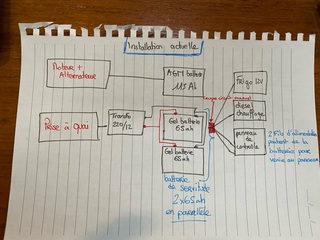 Installation actuelle
Moteur +
Alternateur
AGM batterie
115 Ah
Frigo 12V
Prise à quai
Transfo
220/12
Gel batterie
65 ah
diesel
chauffage
Gel batterie
65ah
panneau de
contrôle
2 Fils d'alimentation
partent de la
batterie pour
venir au panneau
batterie
de servitude
2x65ah
en parallèle